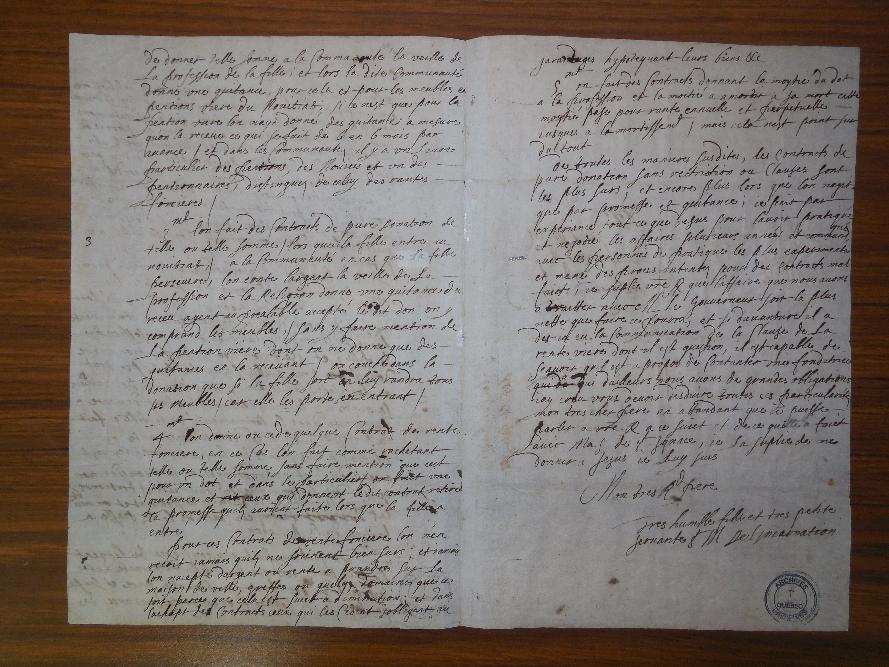 de donner telle somme a la Communaute la veille de
La profession de la fille; et lors la dite Communauté
donne une quitance, pour cela et pour les meubles et
pentions
pention
quon la receue ce qui se fait de 6 en 6 mois par
avance / et dans les Communautés, il y a un livre
particulier des pentions, des Novices et un des
pentionnaires, distingués de celuy des rantes
foncieres /
3 mt lon fait des Contracts de pure donation de
telle ou telle somme / lors que la fille entre au
novitiat / a la Communauté en cas que la fille
persevere, lon conte largent la veille de La
profession et la Religion donne une quitance du
receu ayant au prealable accepté le dit don on y
comprend les meubles / sans y faire mention de
La pention viere dont on ne donne que des
quitances en la recevant / on couche dans la
donation que si la fille sort on luy randra tous
ses meubles / car elle les porte en entrant /
4 mt lon donne ou cede quelque Contrat de rente
fonciere, en ce cas lon fait comme
telle ou telle somme, sans faire mention que cest
pour un dot, et dans le particulier on fait une
quitance et
la promesse quils avoient faite lors que la fille
entre
pour ces Contrats de rente fonciere lon nen
recoit jamais quils ne soient bien surs; et jamais
lon naccepte dargent ou rente a prandre sur la
maison de ville, greffes ou quelques domaines que ce
soit parce que cela est suiet a diminution, et dans
des Contracts ceux qui les cedent sobligent au
garantages hypotequant leurs biens &c
5 mt on fait des Contracts donnant la moytié du dot
a la profession et la moitié a amortir a sa mort cette
moytié pase pour rante annuelle et perpetuelle
jusques a la mortissement / mais cela nest point sur
du tout
De toutes les manieres susdites, les contracts de
pure donation sans restriction ou clauses sont
les plus surs, et encores plus lors que lon nagit
que par promesse et quitance; ce petit par
experiance tout ce que dessus pour lavoir pratiqué
et negotié les affaires plusieurs années
avec les personnes de pratique les plus experimentés
et mené des proces intentés pour des contracts mal
faits; je suplie vre R que laffaire que nous avons
a traitter avec Mr le Gouverneur soit la plus
nette que faire ce pourra; et si davanture il a
desia eu la Communication de la clause de La
rente viere dont il est question, il est capable de
scavoir qu'il est a propos de contenter une fondatrice
qui dailleurs nous avons de grandes obligations
iay creu vous devoir deduire toutes ces particularités
mon tres cher pere en attandant que ie puisse
parler a vre R a ce suiet et de ce quelle a fait
avec Mad de St Ignace, ie la suplie de me
donner a Jesus ie luy suis
Mon tres Rd pere
Tres humble fille et tres petite
servante Sr M De Lincarnation
3
ARCHIVES
QUÉBEC